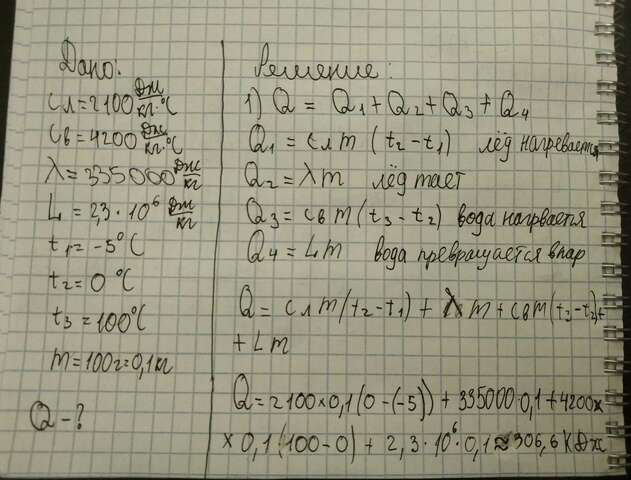 Дано:
cл=2100 Дж/кг·°C
cв=4200 Дж/кг·°C
λ=335000 Дж/кг
L=2,3·10⁶ Дж/кг
t₁=-5°C
t₂=0°C
t₃=100°C
m=100г=0,1кг
Q-?
Решение:
1) Q = Q₁+Q₂+Q₃+Q₄
Q₁=cлm(t₂-t₁) лёд нагревается
Q₂=λm лёд тает
Q₃=cвm(t₃-t₂) вода нагрвается
Q₄=Lm вода превращается впар
Q=cлm(t₂-t₁)+λm+cвm(t₃-t₂)+
+Lm
Q=2100×0,1(0-(-5))+335000·0,1+4200×
×0,1(100-0)+2,3·10⁶·0,1≈306,6КДж